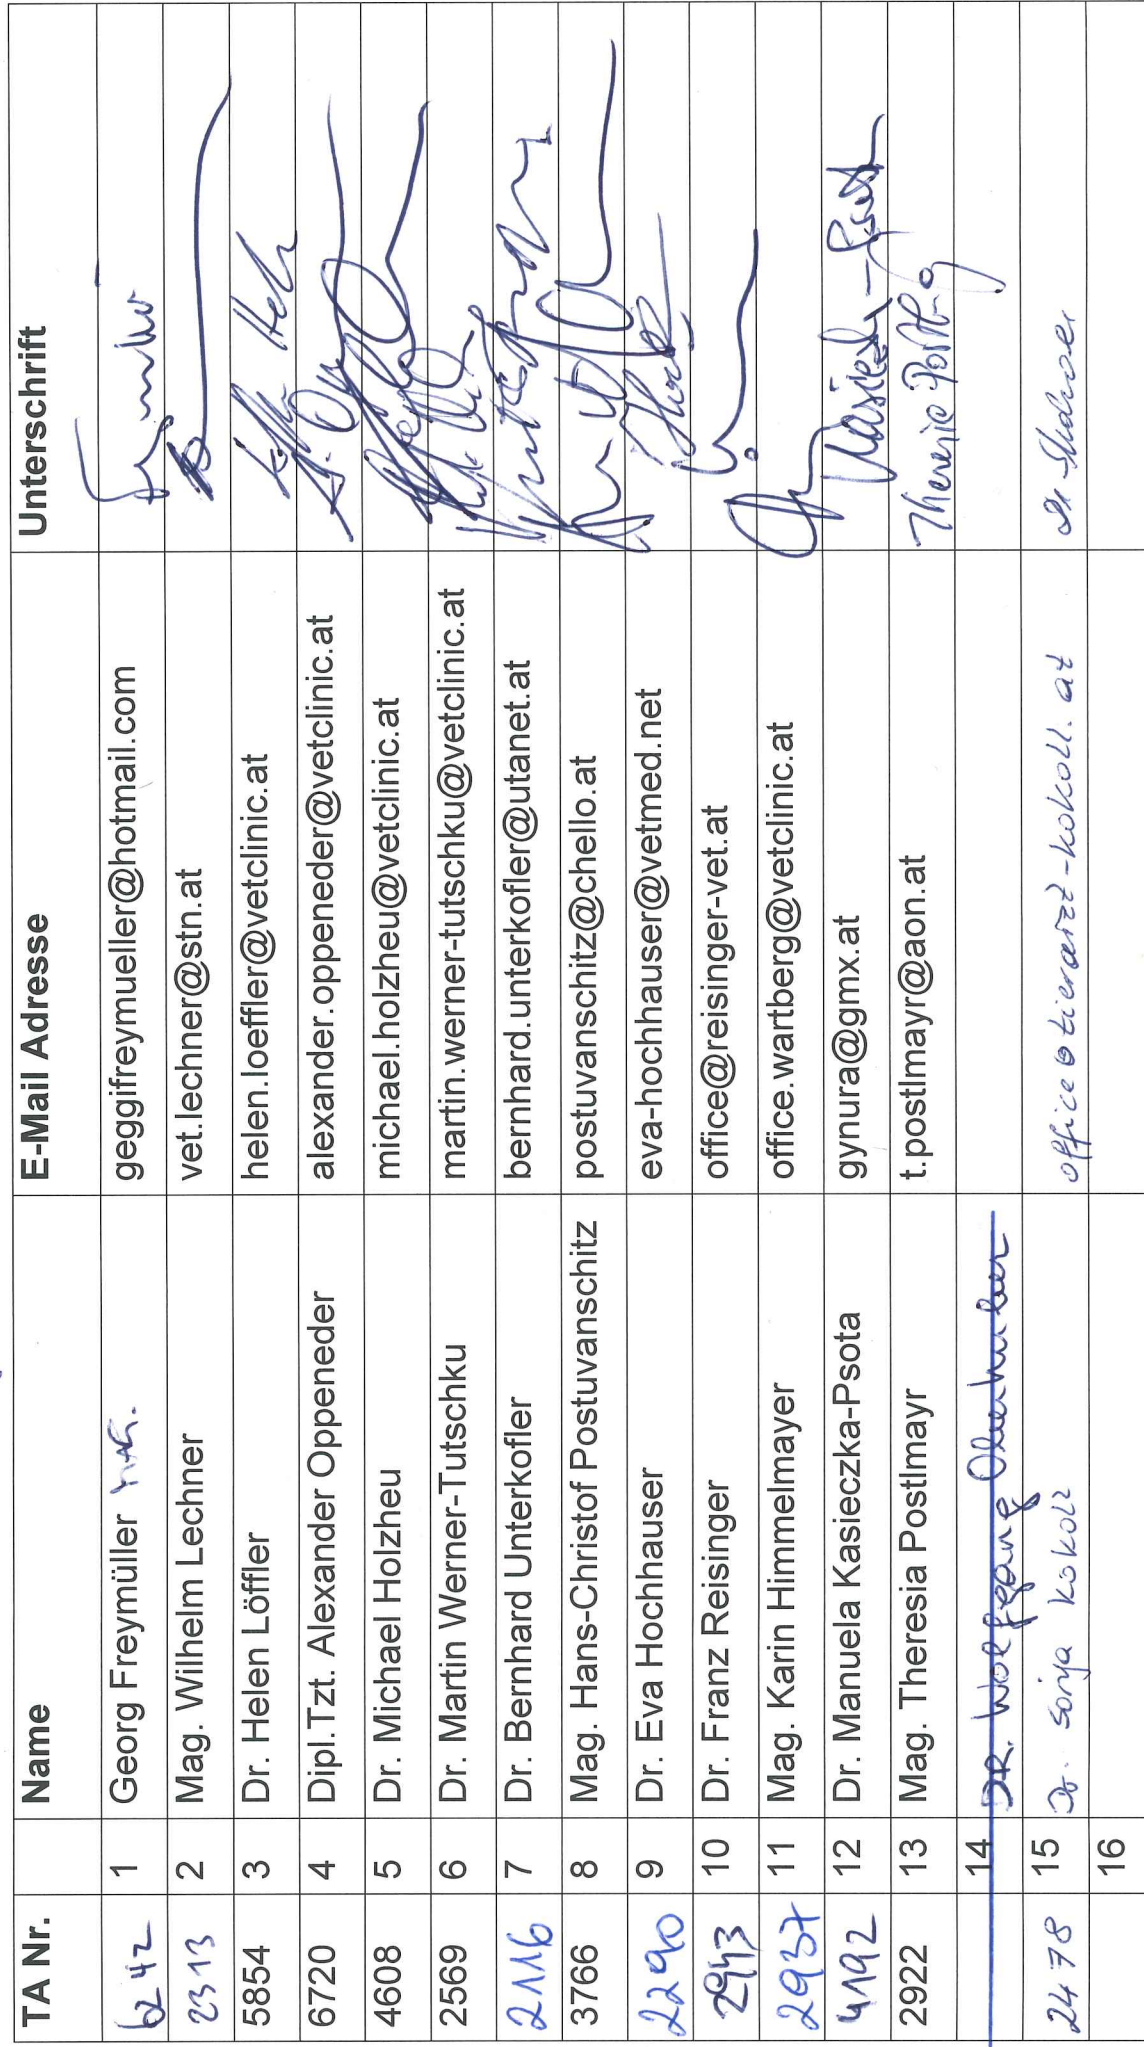 TA Nr. Name E-Mail Adresse Unterschrift
6242 1 Georg Freymüller Mag. geggifreymueller@hotmail.com
2313 2 Mag. Wilhelm Lechner vet.lechner@stn.at
5854 3 Dr. Helen Löffler helen.loeffler@vetclinic.at
6720 4 Dipl.Tzt. Alexander Oppeneder alexander.oppeneder@vetclinic.at
4608 5 Dr. Michael Holzheu michael.holzheu@vetclinic.at
2569 6 Dr. Martin Werner-Tutschku martin.werner-tutschku@vetclinic.at
2116 7 Dr. Bernhard Unterkofler bernhard.unterkofler@utanet.at
3766 8 Mag. Hans-Christof Postuvanschitz postuvanschitz@chello.at
2290 9 Dr. Eva Hochhauser eva-hochhauser@vetmed.net
2943 10 Dr. Franz Reisinger office@reisinger-vet.at
2937 11 Mag. Karin Himmelmayer office.wartberg@vetclinic.at
4192 12 Dr. Manuela Kasieczka-Psota gynura@gmx.at
2922 13 Mag. Theresia Postlmayr t.postlmayr@aon.at
14 DR. Wolfgang
2478 15 Dr. Sonja Kokoll office@tierarzt-kokoll.at
16